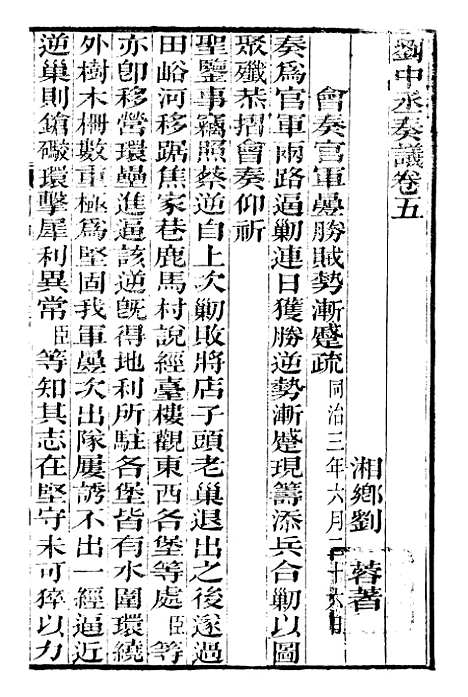 劉中丞奏議卷五
湘鄉劉 蓉著
會奏官軍曡勝賊勢漸蹙疏 同治三年六月二十六日
奏爲官軍兩路逼勦連日獲勝逆勢漸蹙現籌添兵合勦以圖
聚殲恭摺會奏仰祈
聖鑒事竊照蔡逆自上次勦敗將店子頭老巢退出之後遂過
田峪河移踞焦家巷鹿馬村說經臺樓觀東西各堡等處臣等
亦卽移營環壘進逼該逆旣得地利所駐各堡皆有水圍環繞
外樹木柵數重極爲堅固我軍曡次出隊屢誘不出一經逼近
逆巢則鎗礮環擊犀利異常臣等知其志在堅守未可猝以力